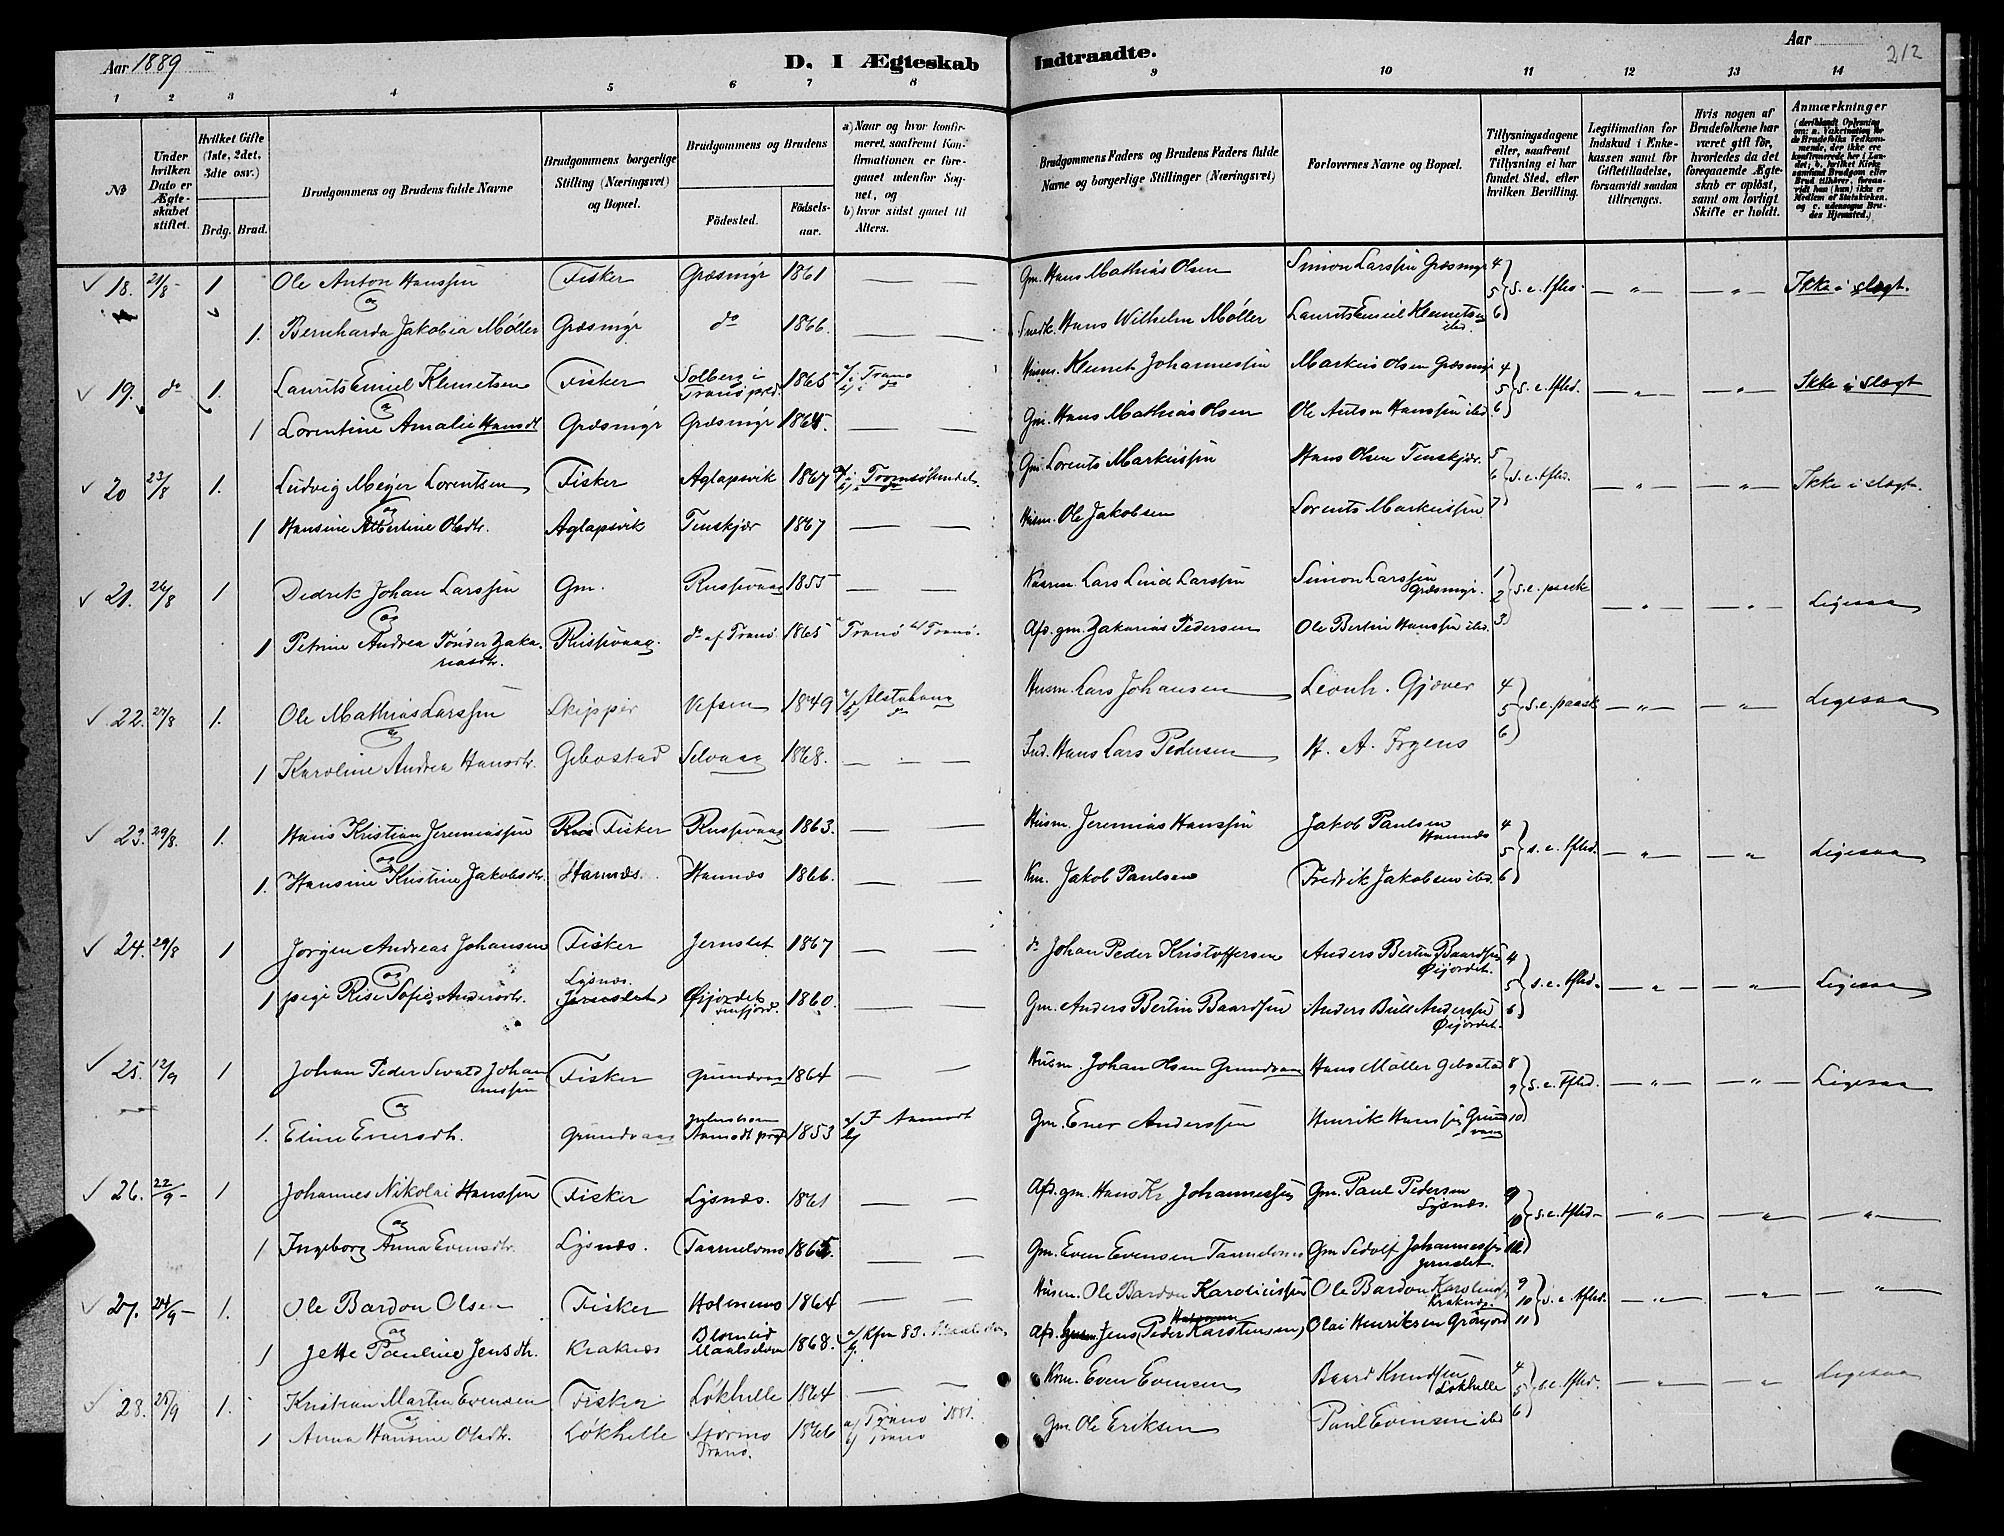 Aar 1889
D. I Ægteskab Indtraadte.
Aar
212
1 2 3 4 5 6 7 8 9 10 11 12 13 14
No
Under hvilken Dato er Ægteskabet stiftet.
Hvilket Gifte (1ste, 2det, 3die osv.)
Brdg. Brud.
Brudgommens og Brudens fulde Navne
Brudgommens borgerlige Stilling (Næringsvei) og Bopæl.
Brudgommens og Brudens
Fødested.
Fødselsaar.
a) Naar og hvor konfirmeret, saafremt Konfirmationen er foregaaet udenfor Sognet, og
b) hvor sidst gaaet til Alters.
Brudgommens Faders og Brudens Faders fulde Navne og borgerlige Stillinger (Næringsvei)
Forlovernes Navne og Bopæl.
Tillysningsdagene eller, saafremt Tillysning ei har fundet Sted, efter hvilken Bevilling.
Legitimation for Indskud i Enkekassen samt for Giftetilladelse, forsaavidt saadan tiltrænges.
Hvis nogen af Brudefolkene har været gift før, hvorledes da det foregaaende Ægteskab er opløst, samt om lovligt Skifte er holdt.
Anmærkninger
18. 21/8 1 Ole Anton Hanssen Fisker Græsmyr 1861 — — Gm. Hans Mathias Olsen Simon Larssen Græsmyr 4 5 6 s. e. tfold. — " — — " — Ikke i slægt.
og
1. Bernharda Jakobia Møller Græsmyr do 1866 — — Hans Wilhelm Møller Laurits Emil Klemetsen ibd.
19. do 1. Laurits Emiel Klemetsen Fisker Solberg i Tranø præd. 1865 a/ i Tranø b/ i do Husm. Klemet Johannessen Markus Olsen Græsmyr 4 5 6 s. e. tfold. — " — — " — Ikke i slægt
og
1 Lorentine Amalie Hansdt Græsmyr Græsmyr 1865. — — Gm. Hans Mathias Olsen Ole Anton Hanssen ibd
20 23/8 1. Ludvig Meyer Lorentsen Fisker Aglapsvik 1867 a/ i Tromsøsundet. b/ i do Gm. Lorents Markussen Hans Olsen Tenskjær. 5 6 7 s. e. tfold. — " — — " — Ikke i slægt.
og
1 Hansine Albertine Olsdtr. Aglapsvik Tenskjær 1867 — — Husm. Ole Jakobsen Lorents Markussen
21. 26/8 1 Dedrik Johan Larssen Gm. Russevaag 1855 — — Lars Lind Larssen Simon Larssen Græsmyr. 1 2 3 s. e. paask — " — — " — Ligesaa
og
1 Petrine Andrea Tønder Zakariasdtr. Russevaag. do af Tranø 1865 a/ Tranø b/ Tranø. Afd. gm. Zakarias Pedersen Ole Bertin Hanssen ibd.
22. 27/8 1. Ole Mathias Larssen Skipper Vefsen 1849 a/ Alstahaug b/ do Husm. Lars Johansen Leonh. Gjæver 4 5 6 s. e. paask — " — — " — Ligesaa
og
1 Karoline Andrea Hansdtr. Gibostad Selvaag 1868. — — — Hans Lars Pedersen H. A. Irgens
23. 29/8. 1. Hans Kristian Jeremiassen Fisker Russevaag 1863. — — Husm. Jeremias Hanssen Jakob Paulsen Hamnæs 4 5 6 s. e. tfold. — " — — " — Ligesaa
og
1. Hansine Kristine Jakobsdtr. Hamnæs. Hamnæs 1866 — — Jakob Paulsen Fredrik Jakobsen ibd.
24. 29/8 1 Jørgen Andreas Johansen Fisker Jernslet 1867 — — do Johan Peder Kristoffersen Anders Bertin Baardsen Øijordet. 4 5 6 s. e. tfold. — " — — " — Ligesaa
og Lysnæs.
1 pige Risi Sofie Andersdtr. Jernslet Øijordet 1860. — — Gm. Anders Bertin Baardsen Anders Bull Anderssen Øijordet.
25. 12/9 1 Johan Peder Sivald Johannessen Fisker Grundvaag 1864 — — Husm. Johan Olsen Grundvaag Hans Møller Gibostad 8 9 10 s. e. Tfold. — " — — " — Ligesaa
og
1. Eline Eversdtr. Grundvaag 1853 Gm. Ener Anderssen Henrik Hanssen Grundvaag
26. 22/9 1 Johannes Nikolai Hanssen Fisker Lysnæs. 1861 — — Afd. gm. Hans Kr. Johannessen Gm. Paul Pedersen Lysnæs. 9 10 s. e. tfold — " — — " — — " —
og
1 Ingeborg Anna Evensdtr. Lysnæs. 1865. — — Gm. Even Evensen Gm. Sedolf Johannessen Jernslet.
27. 24/9 1. Ole Bardon Olsen Fisker Holmenes 1864 — — Husm. Ole Bardon Karoliussen Ole Bardon Karoliussen Kraknæs. 9 10 11 s. e. tfold. — " — — " — "
og
1 Jette Pauline Jensdtr. Kraknæs Blomlid Maalselven 1868. a/ Kfm 83. b/ Afd. Jens Peder Karstensen Olai Henriksen Grøfjord
28. 25/9 1. Kristian Martin Evensen Fisker Løkhelle 1864 — — Even Evensen Baard Knudsen Løkhelle 4 5 6 s.e. tfold. — " — — " — Ligesaa
og
1 Anna Hansine Olsdtr. Løkhelle Stormo Tranø. 1866 a/ Tranø 1881. b/ Tranø Gm. Ole Eriksen Paul Evensen ibd